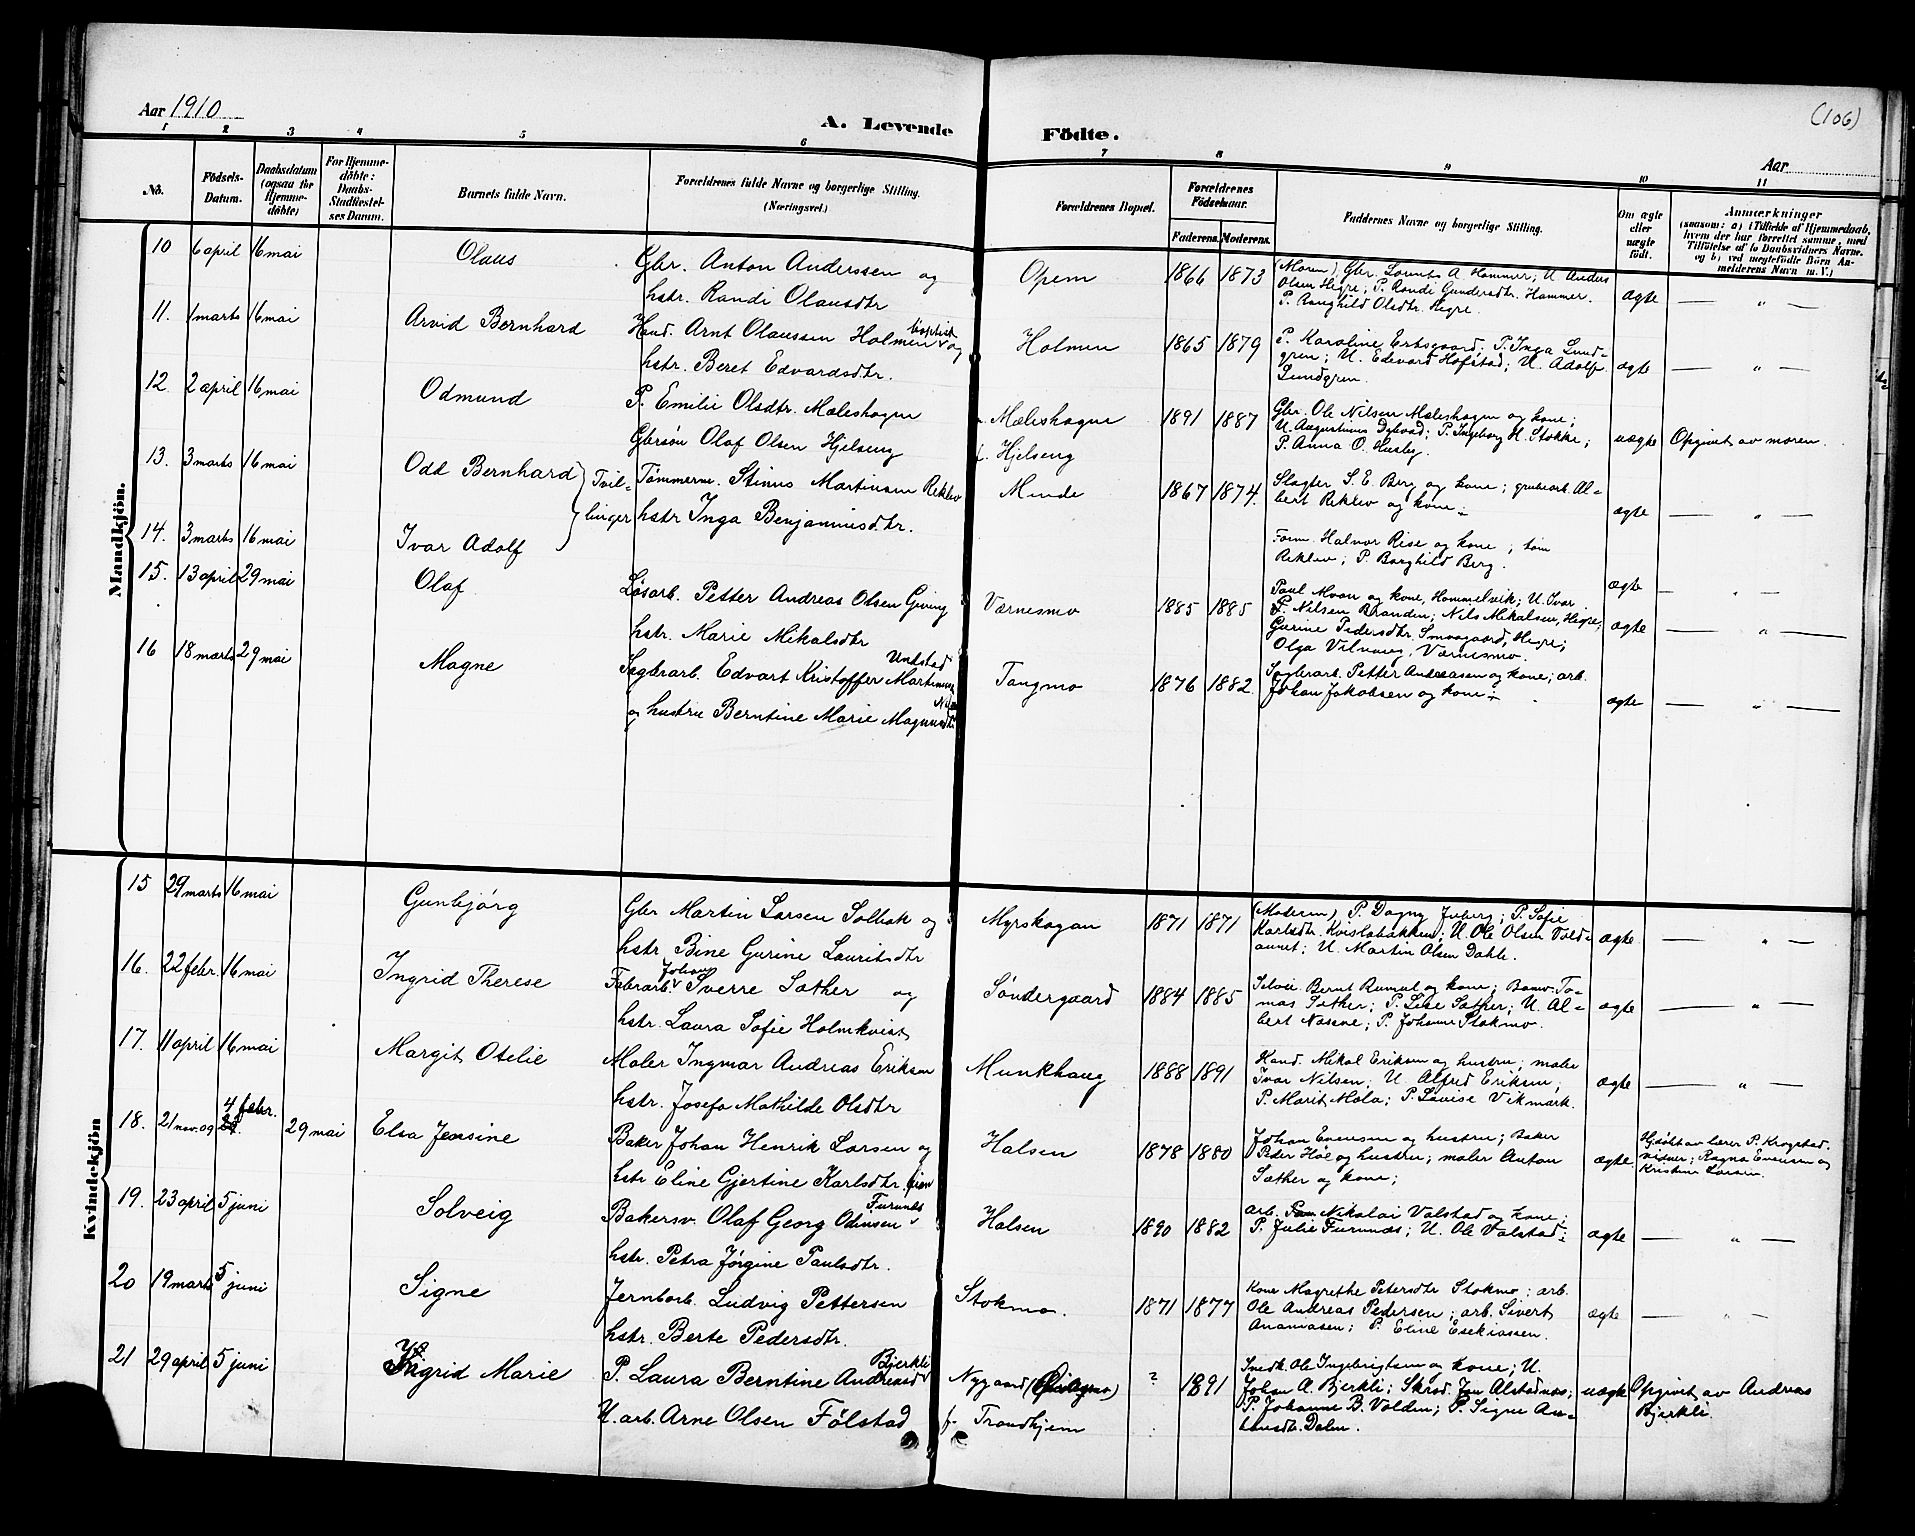 Aar 1910
A. Levende Födte.
(106)
Aar
1 2 3 4 5 6 7 8 9 10 11
No.
Födsels-Datum.
Daabsdatum (ogsaa for Hjemme-döbte)
For Hjemme-döbte: Daabs-Stadfæstel-ses Datum.
Barnets fulde Navn.
Forældrenes fulde Navne og borgerlige Stilling.
(Næringsvei.)
Forældrenes Bopæl.
Forældrenes Födselsaar.
Faderens. Moderens.
Faddernes Navne og borgerlige Stilling.
Om ægte eller uægte födt.
Anmærkninger
(saasom: a) i Tilfælde af Hjemmedaab, hvem der har forrettet samme, med Tilföielse af to Daabsvidners Navne. og b) ved uægtefödte Börn An-melderens Navn m. V.)
Mandkjön.
10 6 april 16 mai Olaus Gbr. Anton Anderssen og
hstr. Randi Olausdtr
Opem 1866 1873 (Moren), Gbr. Lorents A. Hammer; U. Anders
Olsen Hegre; P. Randi Gundersdtr. Hammer.
P. Ranghild Olsdtr. Hegre.
ægte — " —
11. 1 marts 16 mai Arvid Bernhard Hand. Arnt Olaussen Holmen baptist og
hstr. Beret Edvardsdtr.
Holmen 1865 1879 P. Karoline Ertsgaard; P. Inga Lund-
gren; U. Edvard Hofstad; U. Adolf
Lundgren.
ægte — " —
12. 2 april 16 mai Odmund P. Emilie Olsdtr. Mæleshagen
Gbrsøn Olaf Olsen Hjelseng
Mæleshagen
f. Hjelseng
1891 1887 Gbr. Ole Nilsen Mæleshagen og kone;
U. Augustinus Dybvad; P. Ingeborg H. Stokke;
P. Anna O. Husby.
uægte Opgivet av moren.
13. 3 marts 16 mai Odd Bernhard Tvil-
linger
Tømmerm. Stinus Martinsen Reklev
hstr Inga Benjaminsdtr.
Minde 1867 1874. Slagter S. E. Berg og kone; grubearb. Al-
bert Reklev og kone
ægte — " —
14. 3 marts 16 mai Ivar Adolf
Form. Halvor Rise og kone; tøm
Reklev; P. Borghild Berg.
ægte — " —
15. 13 april 29 mai Olaf Løsarb. Petter Andreas Olsen Giving
hstr. Marie Mikalsdtr
Værnesmo 1885 1885 Paul Moan og kone, Hommelvik; U. Ivar
P. Nilsen Branden; Nils Mikalsen, Hegre;
Gurine Pedersdtr. Smaagaard, Hegre;
Olga Vilvang, Værnesmo.
ægte — " —
16 18 marts 29 mai Magne Sagbrarb. Edvart Kristoffer Martinusen Undstad
og hustru Berntine Marie Magnusdtr
Tangmo 1876 1882 Sagbrarb. Petter Andreasen og kone; arb.
Johan Jakobsen og kone
ægte — " —
Kvindekjön
15 29 marts 16 mai Gunbjørg Gbr Martin Larsen Solbak og
hstr. Bine Gurine Lauritsdtr
Myrskogan 1871 1871 (Moderen) P. Dagny Juberg; P. Sofie
Karlsdtr. Kvislabakken; U. Ole Olsen Vold-
aunet; U. Martin Olsen Dahle.
ægte — " —
16. 22 febr. 16 mai Ingrid Therese Fabrarb. Johan Sverre Sæther og
hstr. Laura Sofie Holmkvist
Søndergaard 1884 1885 Selvei. Bernt Ramul og kone; Banv. To-
mas Sæther; P. Lise Sæther; U. Al-
bert Naasne; P. Johanne Stokmo.
ægte — " —
17. 11 april 16 mai Margit Otelie Maler Ingmar Andreas Eriksen
hstr. Josefa Mathilde Olsdtr
Munkhaug 1888 1891 Hand. Mikal Eriksen og hustru; maler
Ivar Nilsen; U. Alfred Eriksen;
P. Marit Mola; P. Lovise Vikmark.
ægte — " —
18. 21 nov. 09 4 febr. 29 mai Elsa Jensine Baker Johan Henrik Larsen og
hstr Eline Gjertine Karlsdtr.
Halsen 1878 1880 Johan Evensen og hustru; Baker
Peder Høe og hustru; maler Anton
Sæther og kone;
ægte Hjdøbt av lærer P. Krogstad.
vidner; Ragna Evensen og
Kristine Larsen.
19. 23 april 5 juni Solveig Bakersv. Olaf Georg Odinsen Furunes
hstr. Petra Jørgine Paulsdtr.
Halsen 1890 1882 arb. Nikolai Valstad og kone;
P. Julie Furunæs; U. Ole Valstad
ægte — " —
20 19 marts 5 juni Signe Jernbarb. Ludvig Pettersen
hstr. Berte Pedersdtr.
Stokmo. 1871 1877 Kone Magrethe Petersdtr Stokmo; arb.
Ole Andreas Pedersen; arb. Sivert
Ananiasen; P. Eline Esekiassen.
ægte — " —
21 29 april 5 juni Ingrid Marie P. Laura Berntine Andreasd Bjerkli
U. arb. Arne Olsen Følstad
Nygaard
f. Trondhjem
? 1891 Snedk. Ole Ingebrigtsen og kone; U.
Johan A. Bjerkli; Skræd. Jon Alstadnæs;
P. Johanne B. Volden; P. Signe An-
tonsdtr. Dalen.
uægte Opgivet av Andreas
Bjerkli.